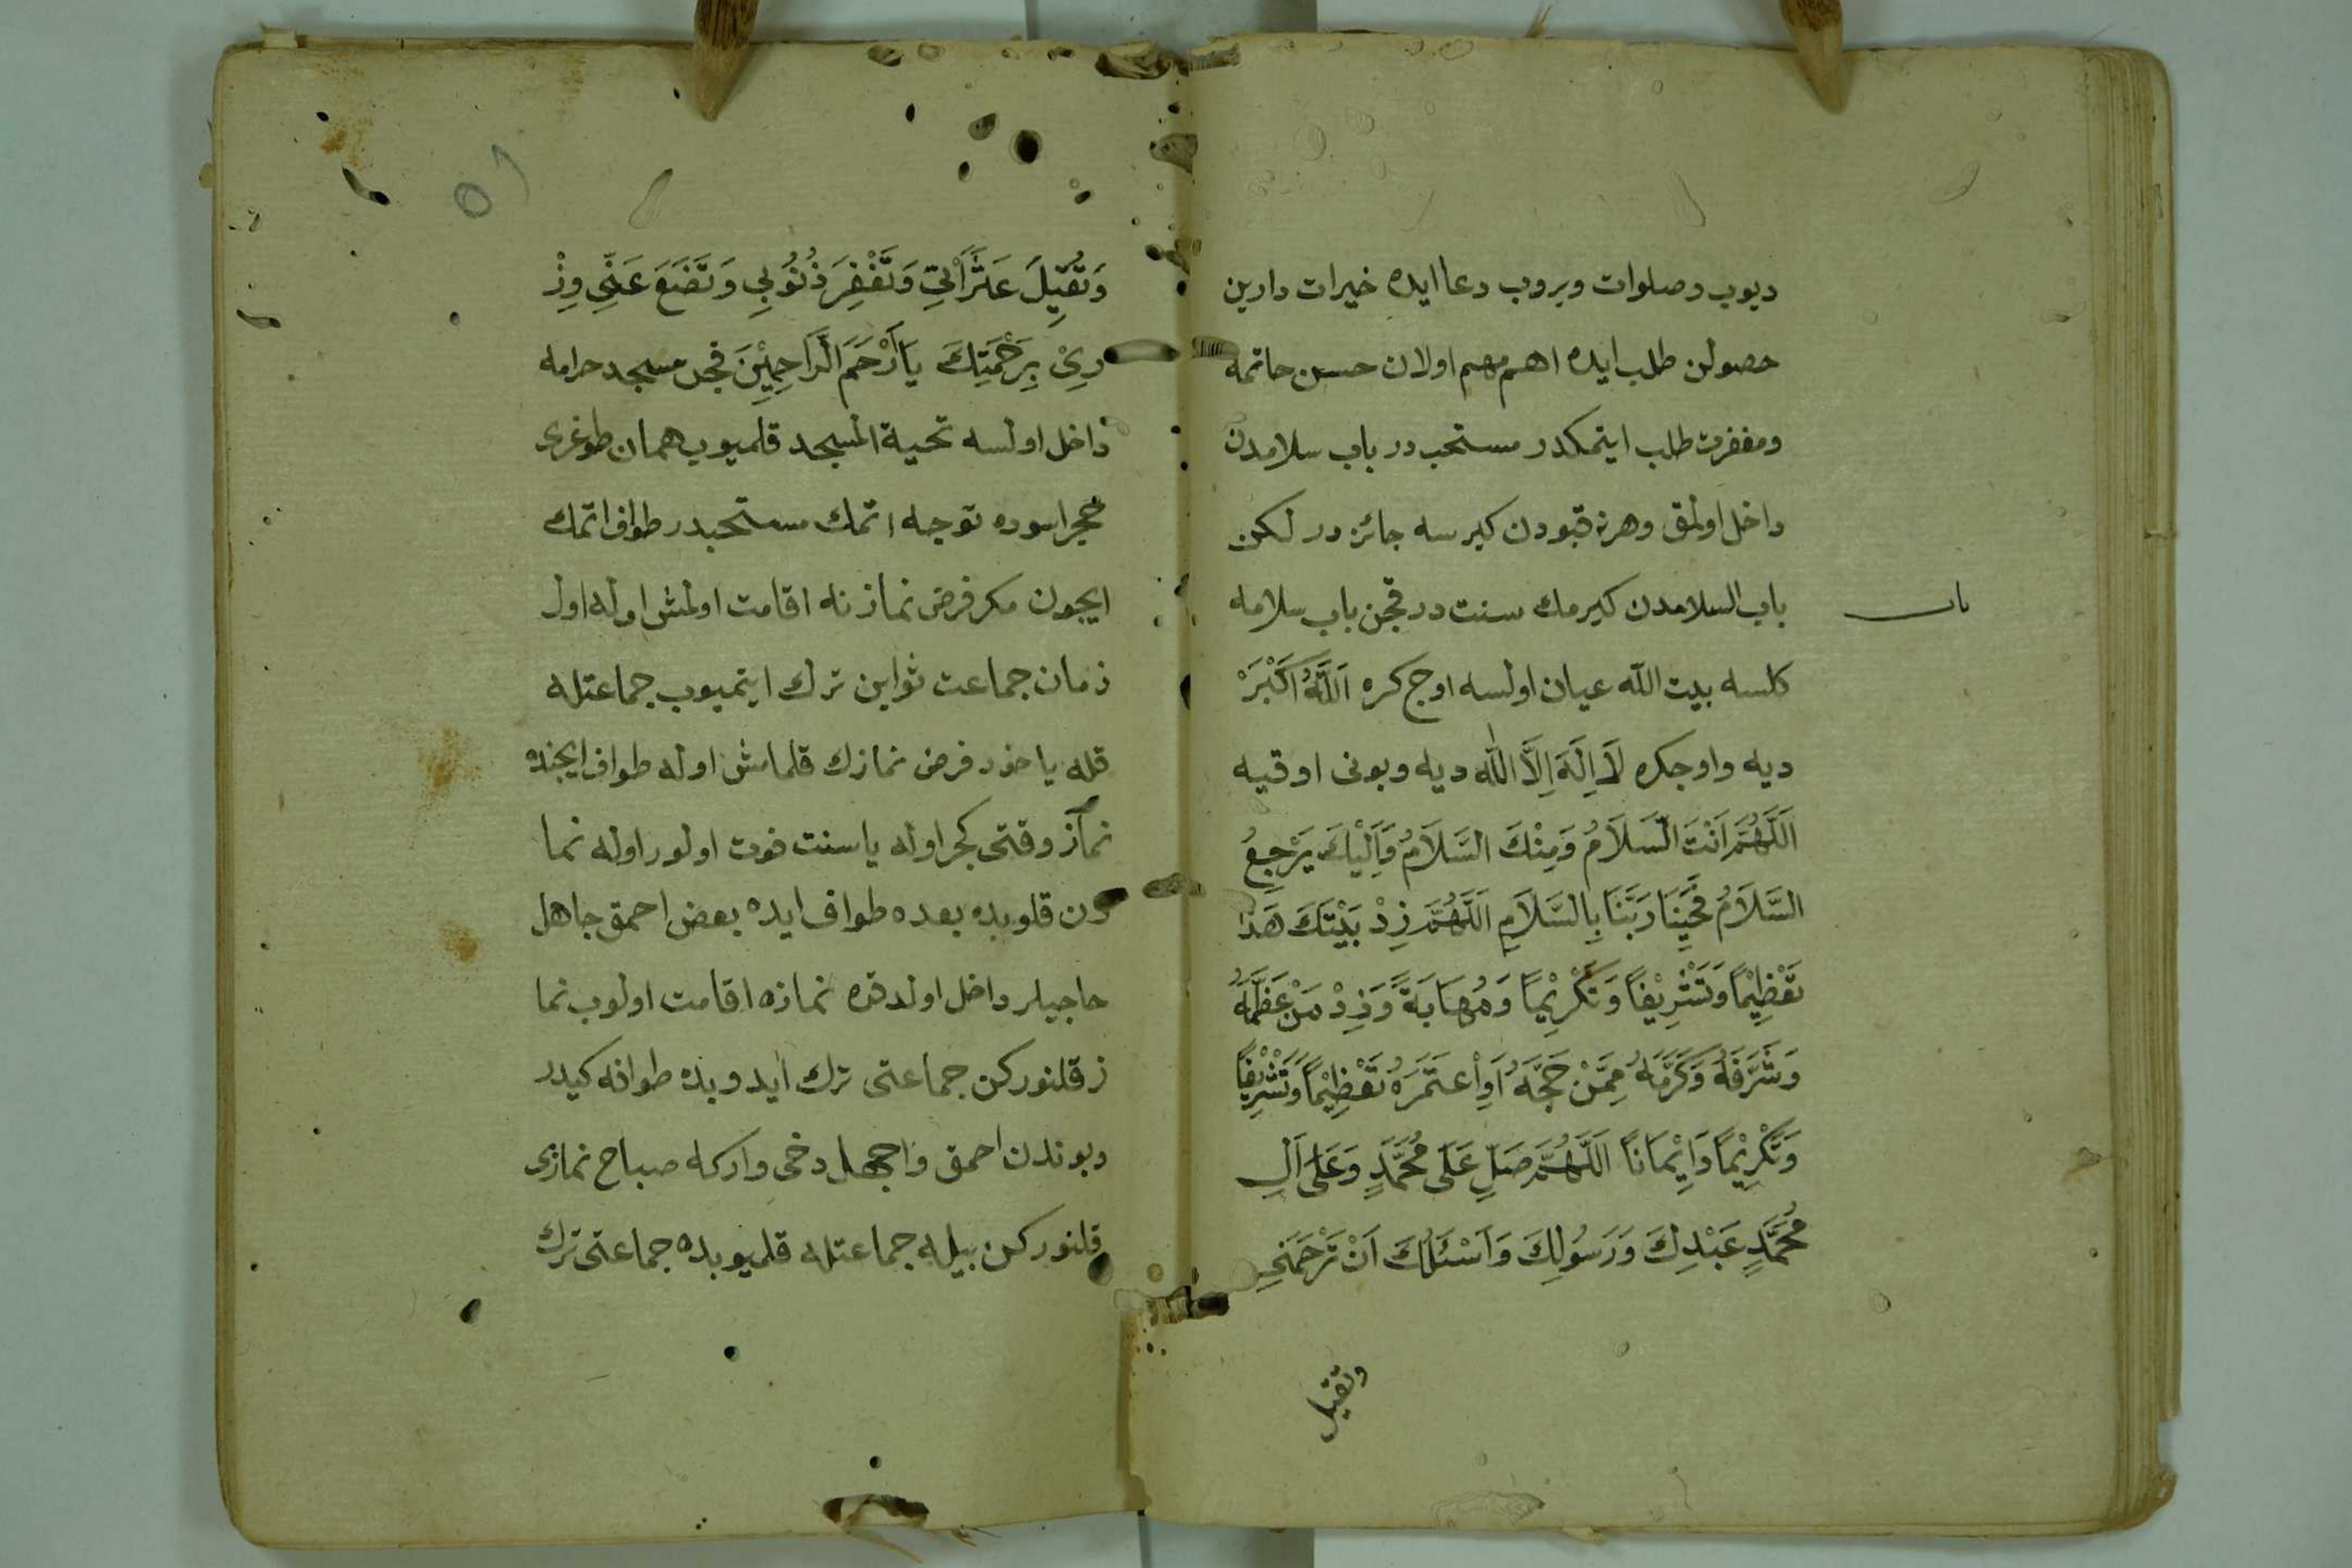 ديوب وصلوات ويروب دعا ايده خيرات دارين
حصولن طلب ايده اهم مهم اولان حسن خاتمه
ومغفرت طلب ايتمكدر مستحب در باب سلامدن
داخل اولمق وهر نه قبودن كيرسه جائز در لكن
باب السلامدن كيرمك سنت در قچن باب سلامه
كلسه بيت الله عيان اولسه اوچ كره اَللّٰهُ اَكْبَرْ
ديه واوچكره لَا اِلٰهَ اِلَّا اللّٰه ديه وبونى اوقيه
اَللّٰهُمَّ اَنْتَ السَّلَامُ وَمِنْكَ السَّلَامُ وَاِلَيْكَ يَرْجِعُ
السَّلَامُ فَحَيِّنَا رَبَّنَا بِالسَّلَامِ اَللّٰهُمَّ زِدْ بَيْتَكَ هَذَا
تَعْظِيْمًا وَتَشْرِيْفًا وَتَكْرِيْمًا وَمُهَابَةً وَزِدْ مَنْ عَظَّمَهُ
وَشَرَّفَهُ وَكَرَّمَهُ مِمَّنْ حَجَّهُ اَوِاعْتَمَرَهُ تَعْظِيْمًا وَتَشْرِيْفًا
وَتَكْرِيْمًا وَاِيْمَانًا اَللّٰهُمَّ صَلِّ عَلَى مُحَمَّدٍ وَعَلَى اٰلِ
مُحَمَّدٍ عَبْدِكَ وَرَسُولِكَ وَاَسْئَلُكَ اَنْ تَرْحَمَنِى
وتقيل
٥١
وَتُقِيلَ عَثَرَاتِي وَتَغْفِرَ ذُنُوبِي وَتَضَعَ عَنِّي وِزْ
رِىْ بِرَحْمَتِكَ يَا اَرْحَمَ الرَّاحِمِيْنَ قچن مسجد حرامه
داخل اولسه تحية المسجد قلميوب همان طوغرى
حجر اسوده توجه اتمك مستحبدر طواف اتمك
ايچون مكر فرض نمازنه اقامت اولمش اوله اول
زمان جماعت ثوابن ترك ايتميوب جماعتله
قله ياخود فرض نمازك قلمامش اوله طواف ايچنده
نماز وقتى كچر اوله يا سنت فوت اولور اوله نما
زن قلوبده بعده طواف ايده بعض احمق جاهل
حاجيلر داخل اولدقده نمازه اقامت اولوب نما
ز قلنوركن جماعتى ترك ايدوبده طوافه كيدر
وبوندن احمق واجهل دخى واركه صباح نمازى
قلنوركن بيله جماعتله قلميوبده جماعتى ترك